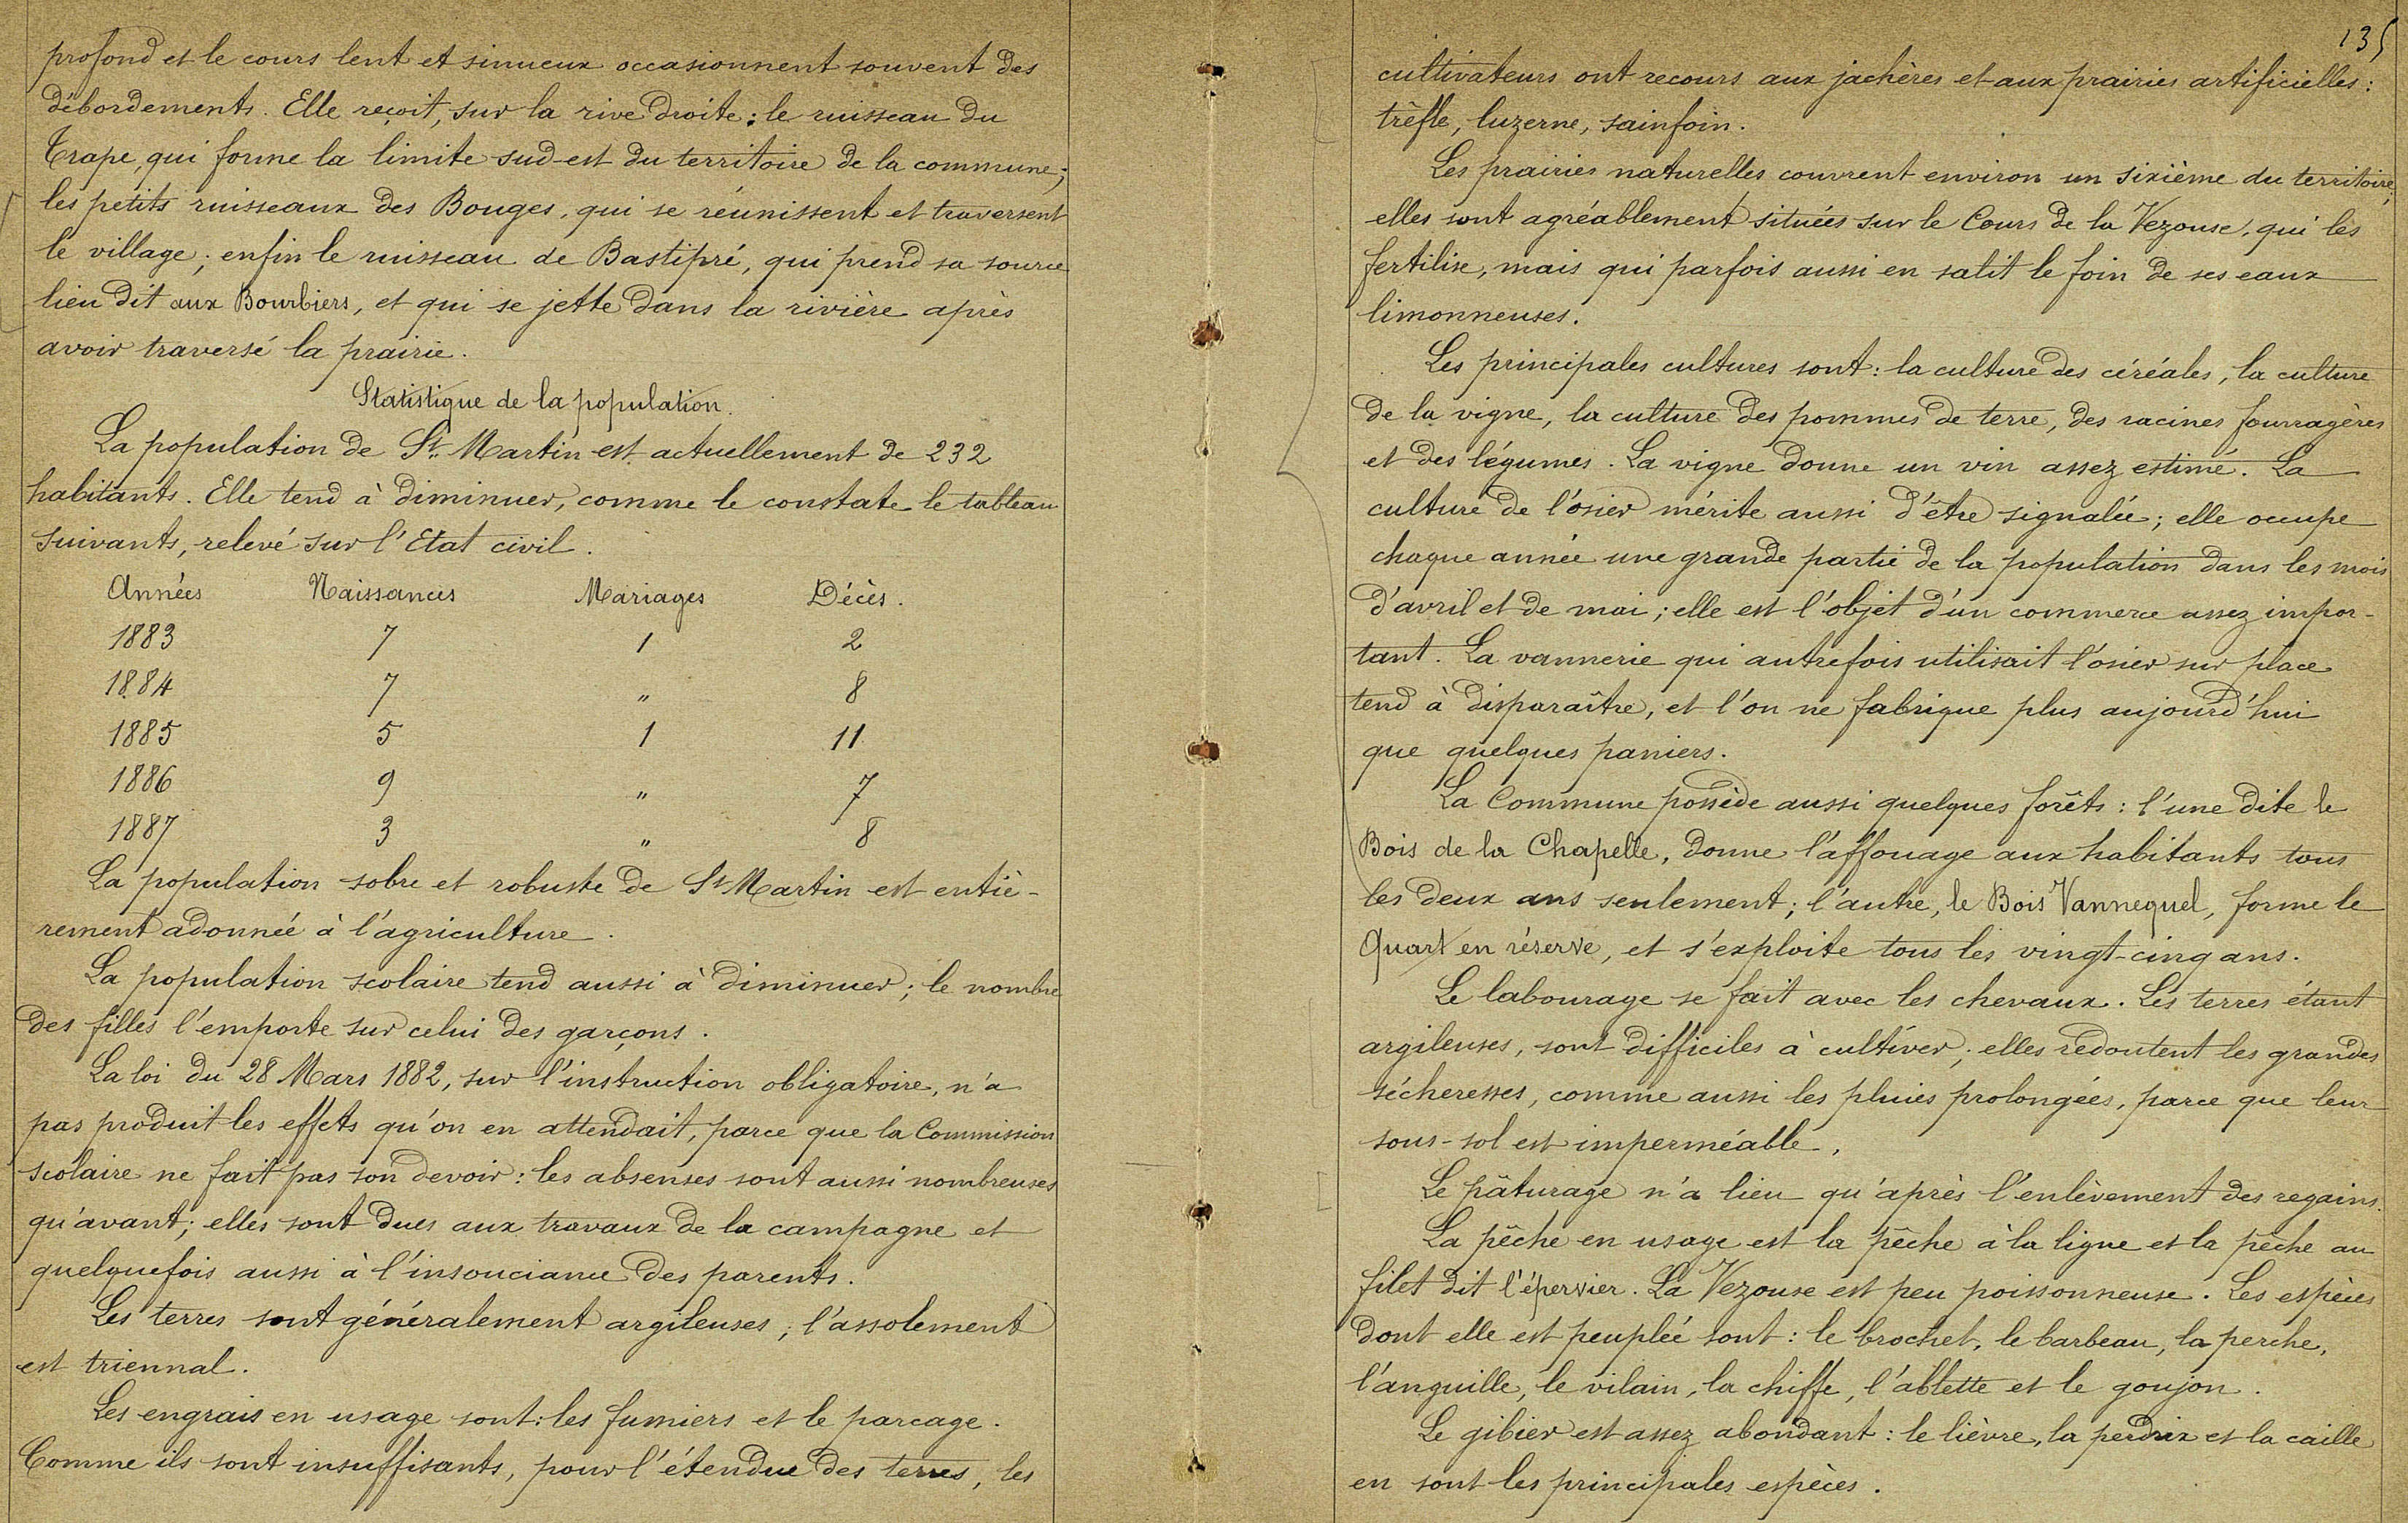 profond et le cours lent et sinueux occasionnent souvent des
débordements. Elle reçoit, sur la rive droite : le ruisseau du
Trape, qui forme la limite sud-est du territoire de la commune ;
les petits ruisseaux des Bouges, qui se réunissent et traversent
le village ; enfin le ruisseau de Bastipré, qui prend sa source
lieu dit aux Bourbiers, et qui se jette dans la rivière après
avoir traversé la prairie.
Statistique de la population.
La population de St. Martin est actuellement de 232
habitants. Elle tend à diminuer, comme le constate le tableau
suivants, relevé sur l'Etat civil.
Années Naissances Mariages Décès.
1883 7 1 2
1884 7 " 8
1885 5 1 11
1886 9 " 7
1887 3 " 8
La population sobre et robuste de St Martin est entiè-
rement adonnée à l'agriculture.
La population scolaire tend aussi à diminuer ; le nombre
des filles l'emporte sur celui des garçons.
La loi du 28 Mars 1882, sur l'instruction obligatoire, n'a
pas produit les effets qu'on en attendait, parce que la Commission
scolaire ne fait pas son devoir : les absenses sont aussi nombreuses
qu'avant ; elles sont dues aux travaux de la campagne et
quelquefois aussi à l'insouciance des parents.
Les terres sont généralement argileuses ; l'assolement
est triennal.
Les engrais en usage sont : les fumiers et le parcage.
Comme ils sont insuffisants, pour l'étendue des terres, les
135
cultivateurs ont recours aux jachères et aux prairies artificielles :
trèfle, luzerne, sainfoin.
Les prairies naturelles couvrent environ un sixième du territoire,
elles sont agréablement situées sur le Cours de la Vezouse, qui les
fertilise, mais qui parfois aussi en salit le foin de ses eaux
limonneuses.
Les principales cultures sont : la culture des céréales, la culture
de la vigne, la culture des pommes de terre, des racines fourragères
et des légumes. La vigne donne un vin assez estimé. La
culture de l'osier mérite aussi d'être signalée ; elle occupe
chaque année une grande partie de la population dans les mois
d'avril et de mai ; elle est l'objet d'un commerce assez impor-
tant. La vannerie qui autrefois utilisait l'osier sur place
tend à disparaître, et l'on ne fabrique plus aujourd'hui
que quelques paniers.
La Commune possède aussi quelques forêts : l'une dite le
Bois de la Chapelle, donne l'affouage aux habitants tous
les deux ans seulement ; l'autre, le Bois Vannequel, forme le
Quart en réserve, et s'exploite tous les vingt-cinq ans.
Le labourage se fait avec les chevaux. Les terres étant
argileuses, sont difficiles à cultiver ; elles redoutent les grandes
sécheresses, comme aussi les pluies prolongées, parce que leur
sous-sol est imperméable.
Le pâturage n'a lieu qu'après l'enlèvement des regains.
La pêche en usage est la pêche à la ligne et la pêche au
filet dit l'épervier. La Vezouse est peu poissonneuse. Les espèces
dont elle est peuplée sont : le brochet, le barbeau, la perche,
l'anguille, le vilain, la chiffe, l'ablette et le goujon.
Le gibier est assez abondant : le lièvre, la perdrix et la caille
en sont les principales espèces.